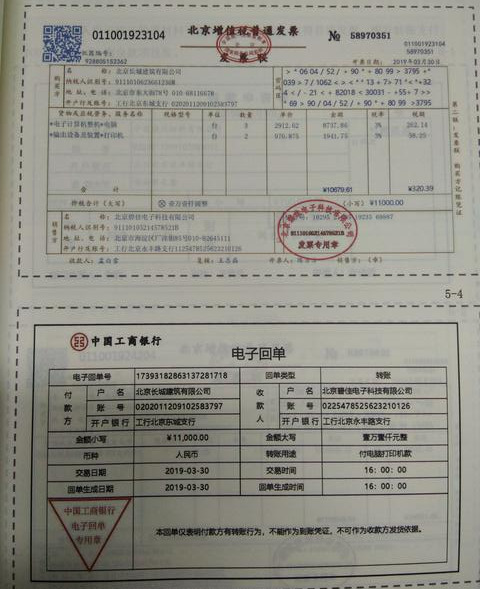 011001923104
北京增值税普通发票
发票联
№ 58970351
011001923104
58970351
开票日期：2019年03月30日
购买方
名 称：北京长城建筑有限公司
地 址、电 话：北京市东大街78号 010-68116678
开户行及账号：工行北京东城支行 0202011209102583797
密码区
货物及应税劳务、服务名称 规格型号 单位 数量 单价 金额 税率 税额
*电子计算机整机*电脑 台 3 2912.62 8737.86 3% 262.14
*输出设备及装置*打印机 台 2 970.875 1941.75 3% 58.25
合 计 ¥10679.61 ¥320.39
价税合计（大写） 壹万壹仟圆整 （小写）¥11000.00
销售方
名 称：北京碧佳电子科技有限公司
纳税人识别号：91110106214578521B
开户行及账号：工行北京永丰路支行
发票专用章
收款人：
复核：
开票人：
销售方：（章）
第二联：发票联 购买方记账凭证
5-4
中国工商银行
电子回单
电子回单号 17393182863137281718 回单类型 转账
付款方 户名 北京长城建筑有限公司 收款人 户名 北京碧佳电子科技有限公司
账号 0202011209102583797 账号 0225478525623210126
开户银行 工行北京东城支行 开户银行 工行北京永丰路支行
金额小写 ¥11,000.00 金额大写 壹万壹仟元整
币种 人民币 转账用途 付电脑打印机款
交易日期 2019-03-30 交易时间 16：00：00
回单生成日期 2019-03-30 回单生成时间 16：00：00
中国工商银行
电子回单
专用章
本回单仅表明付款方有转账行为，不能作为到账凭证，不可作为收款方发货依据。